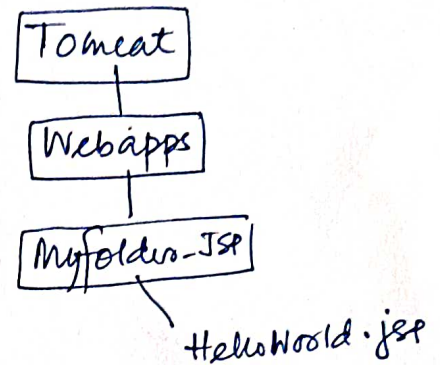 Tomcat
Webapps
Myfolder-Jsp
HelloWorld.jsp